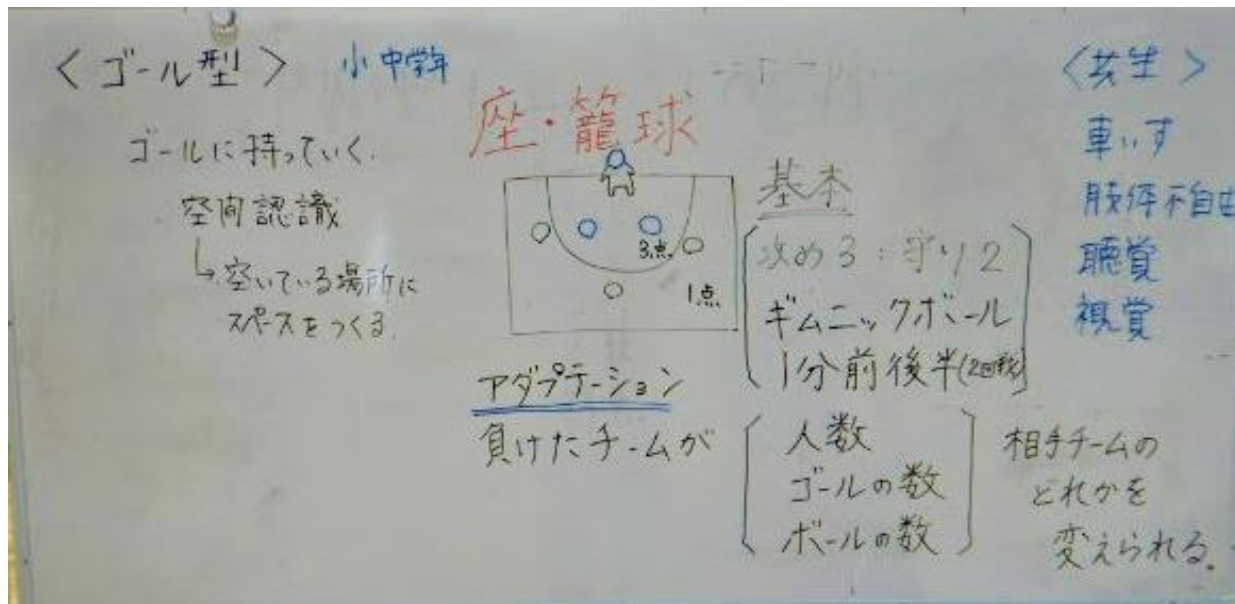 ＜ゴール型＞ 小中学年
ゴールに持っていく.
空間認識
↳空いている場所に
スペースをつくる.
座・籠球
3点
1点
基本
攻め3:守り2
ギムニックボール
1分前後半(2回戦)
アダプテーション
負けたチームが
人数
ゴールの数
ボールの数
相手チームの
どれかを
変えられる.
＜共生＞
車いす
肢体不自由
聴覚
視覚